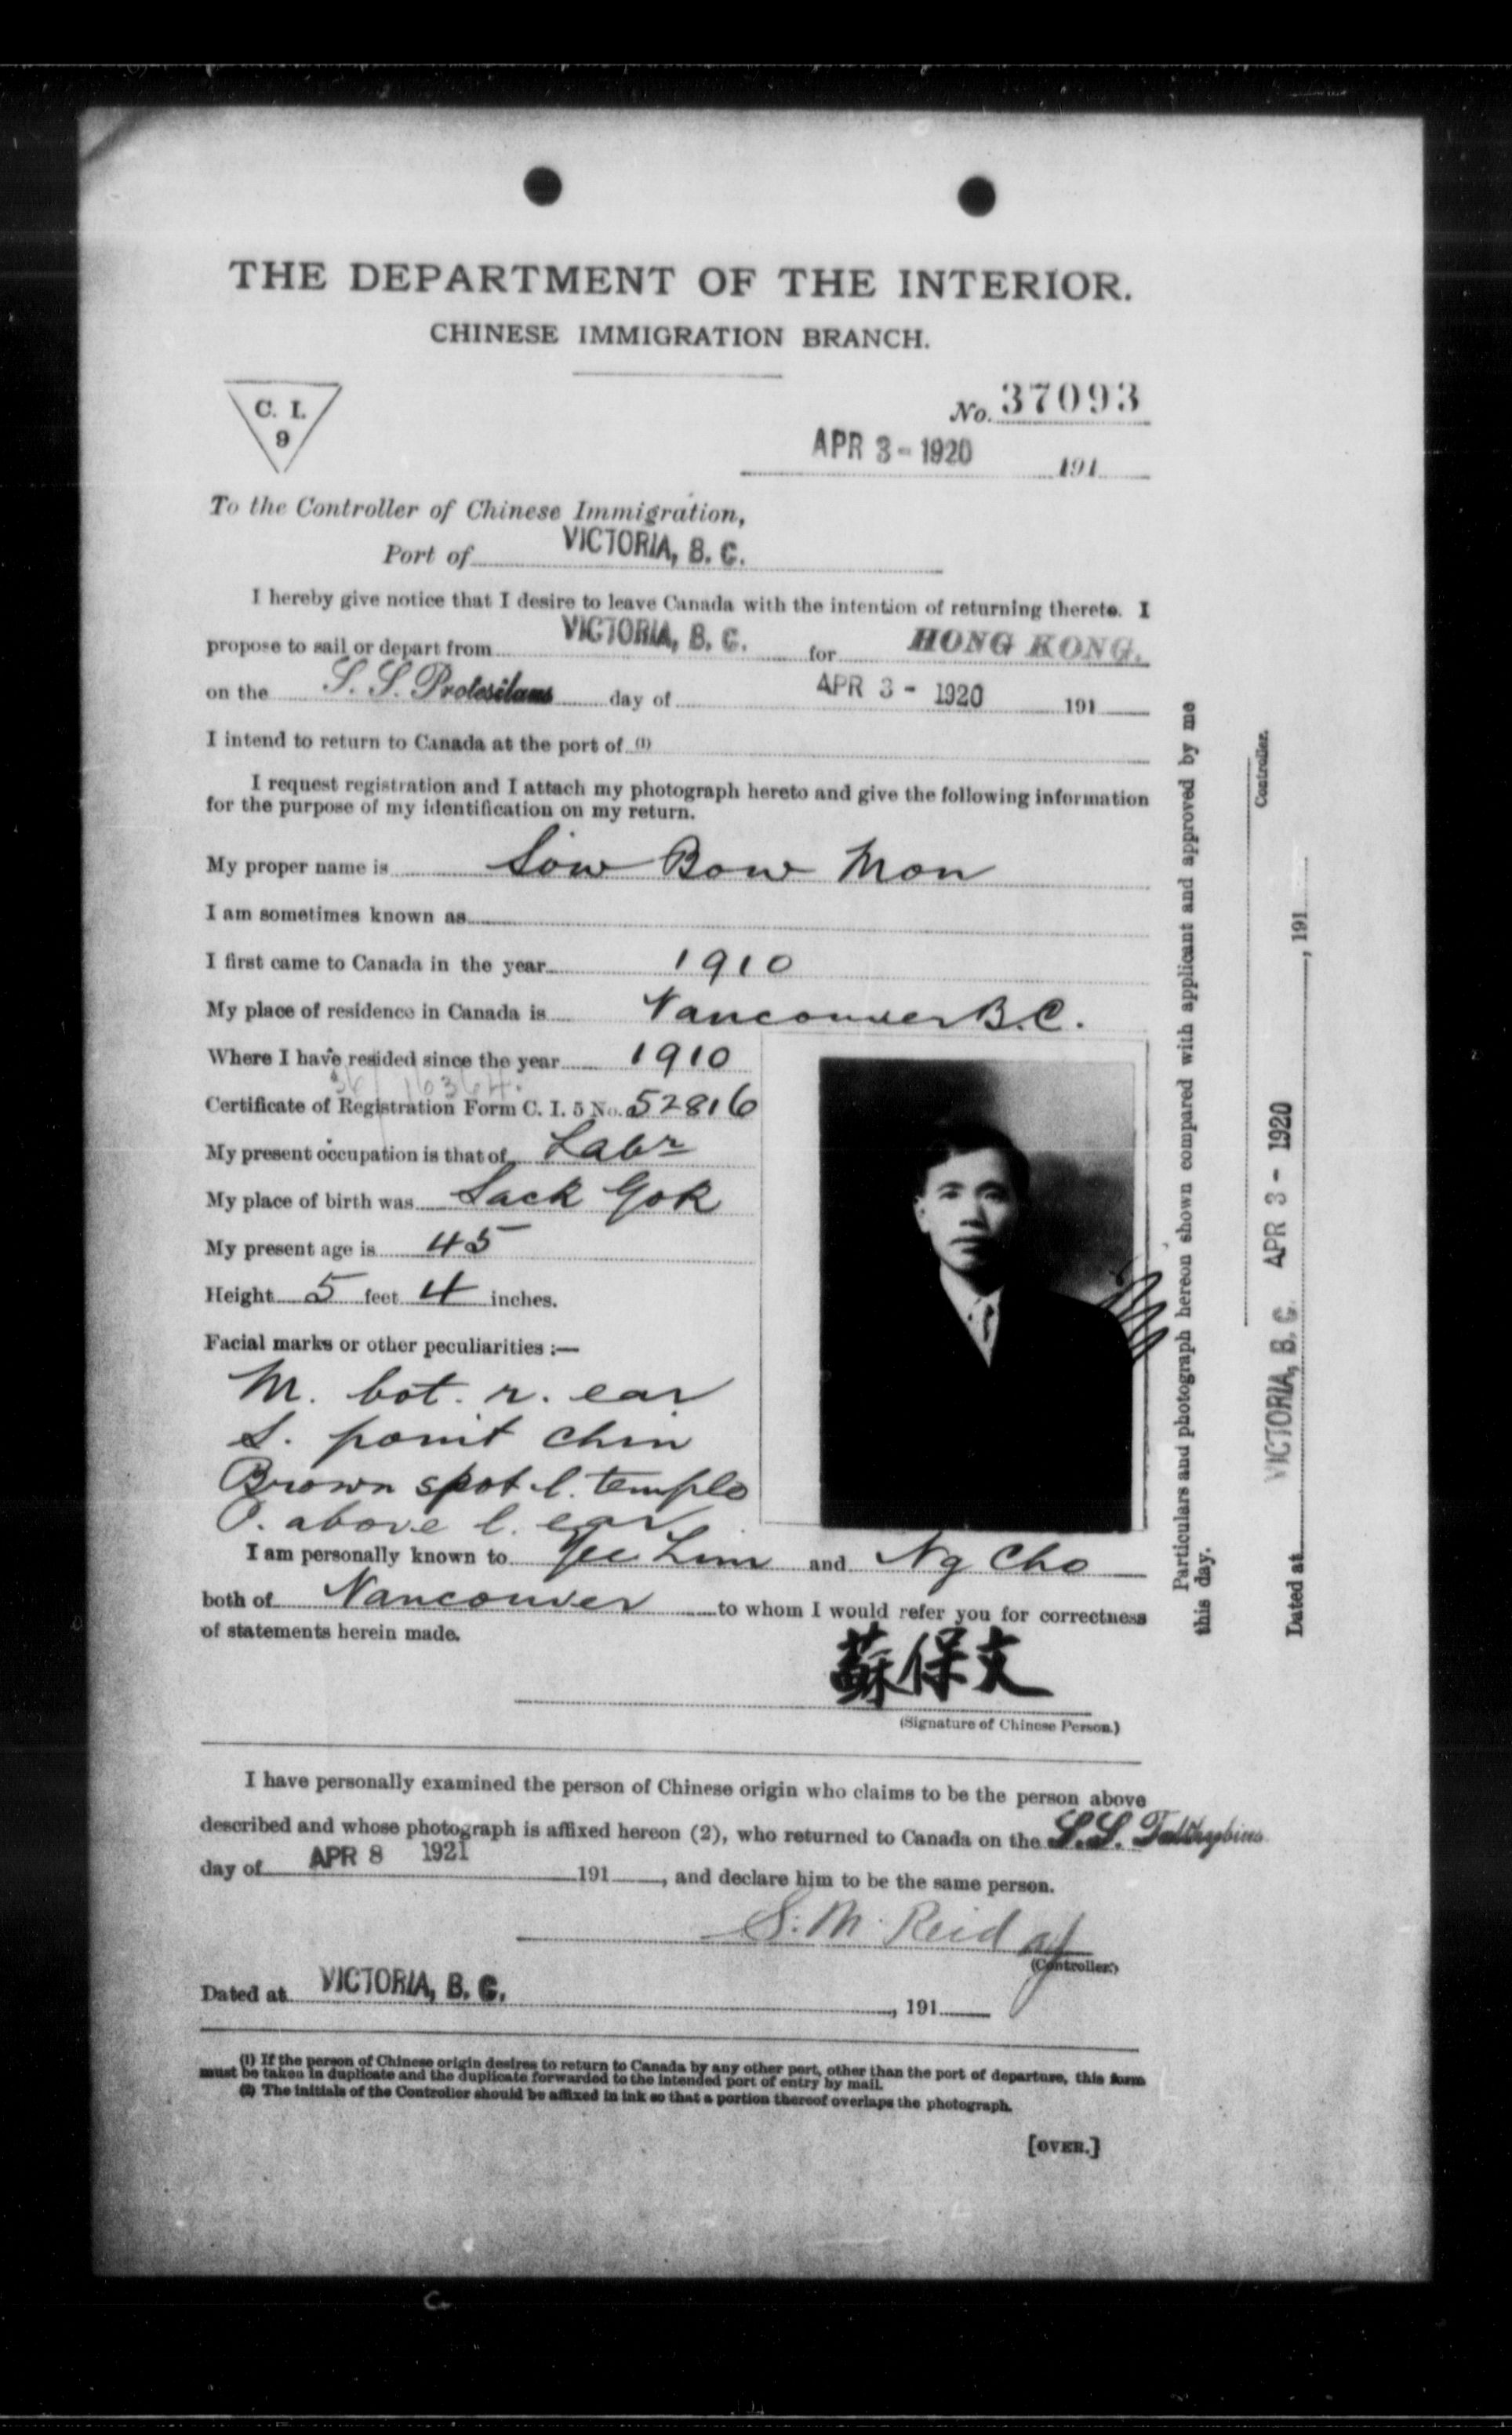 THE DEPARTMENT OF THE INTERIOR.
CHINESE IMMIGRATION BRANCH.
C. I.
9
No. 37093
APR 3 - 1920 191
To the Controller of Chinese Immigration,
Port of VICTORIA, B. C.
I hereby give notice that I desire to leave Canada with the intention of returning thereto. I
propose to sail or depart from VICTORIA, B. C. for HONG KONG.
on the S. S. Protesilaus day of APR 3 - 1920 191
I intend to return to Canada at the port of (1)
I request registration and I attach my photograph hereto and give the following information
for the purpose of my identification on my return.
My proper name is Sow Bow Mon
I am sometimes known as
I first came to Canada in the year 1910
My place of residence in Canada is Vancouver B.C.
Where I have resided since the year 1910
Certificate of Registration Form C. I. 5 No. 52816
My present occupation is that of Labr
My place of birth was Sack Gok
My present age is 45
Height 5 feet 4 inches.
Facial marks or other peculiarities :—
M. bot. r. ear
S. point chin
Brown spot l. temple
P. above l. ear
I am personally known to Yee Lim and Ng Cho
both of Vancouver to whom I would refer you for correctness
of statements herein made.
蘇保文
(Signature of Chinese Person.)
I have personally examined the person of Chinese origin who claims to be the person above
described and whose photograph is affixed hereon (2), who returned to Canada on the S.S. Talthybius
day of APR 8 1921 191, and declare him to be the same person.
S. M. Reid
(Controller.)
Dated at VICTORIA, B. C. , 191
(1) If the person of Chinese origin desires to return to Canada by any other port, other than the port of departure, this form
must be taken in duplicate and the duplicate forwarded to the intended port of entry by mail.
(2) The initials of the Controller should be affixed in ink so that a portion thereof overlaps the photograph.
[OVER.]
Particulars and photograph hereon shown compared with applicant and approved by me
this day.
Controller.
Dated at VICTORIA, B. C. APR 3 - 1920 , 191